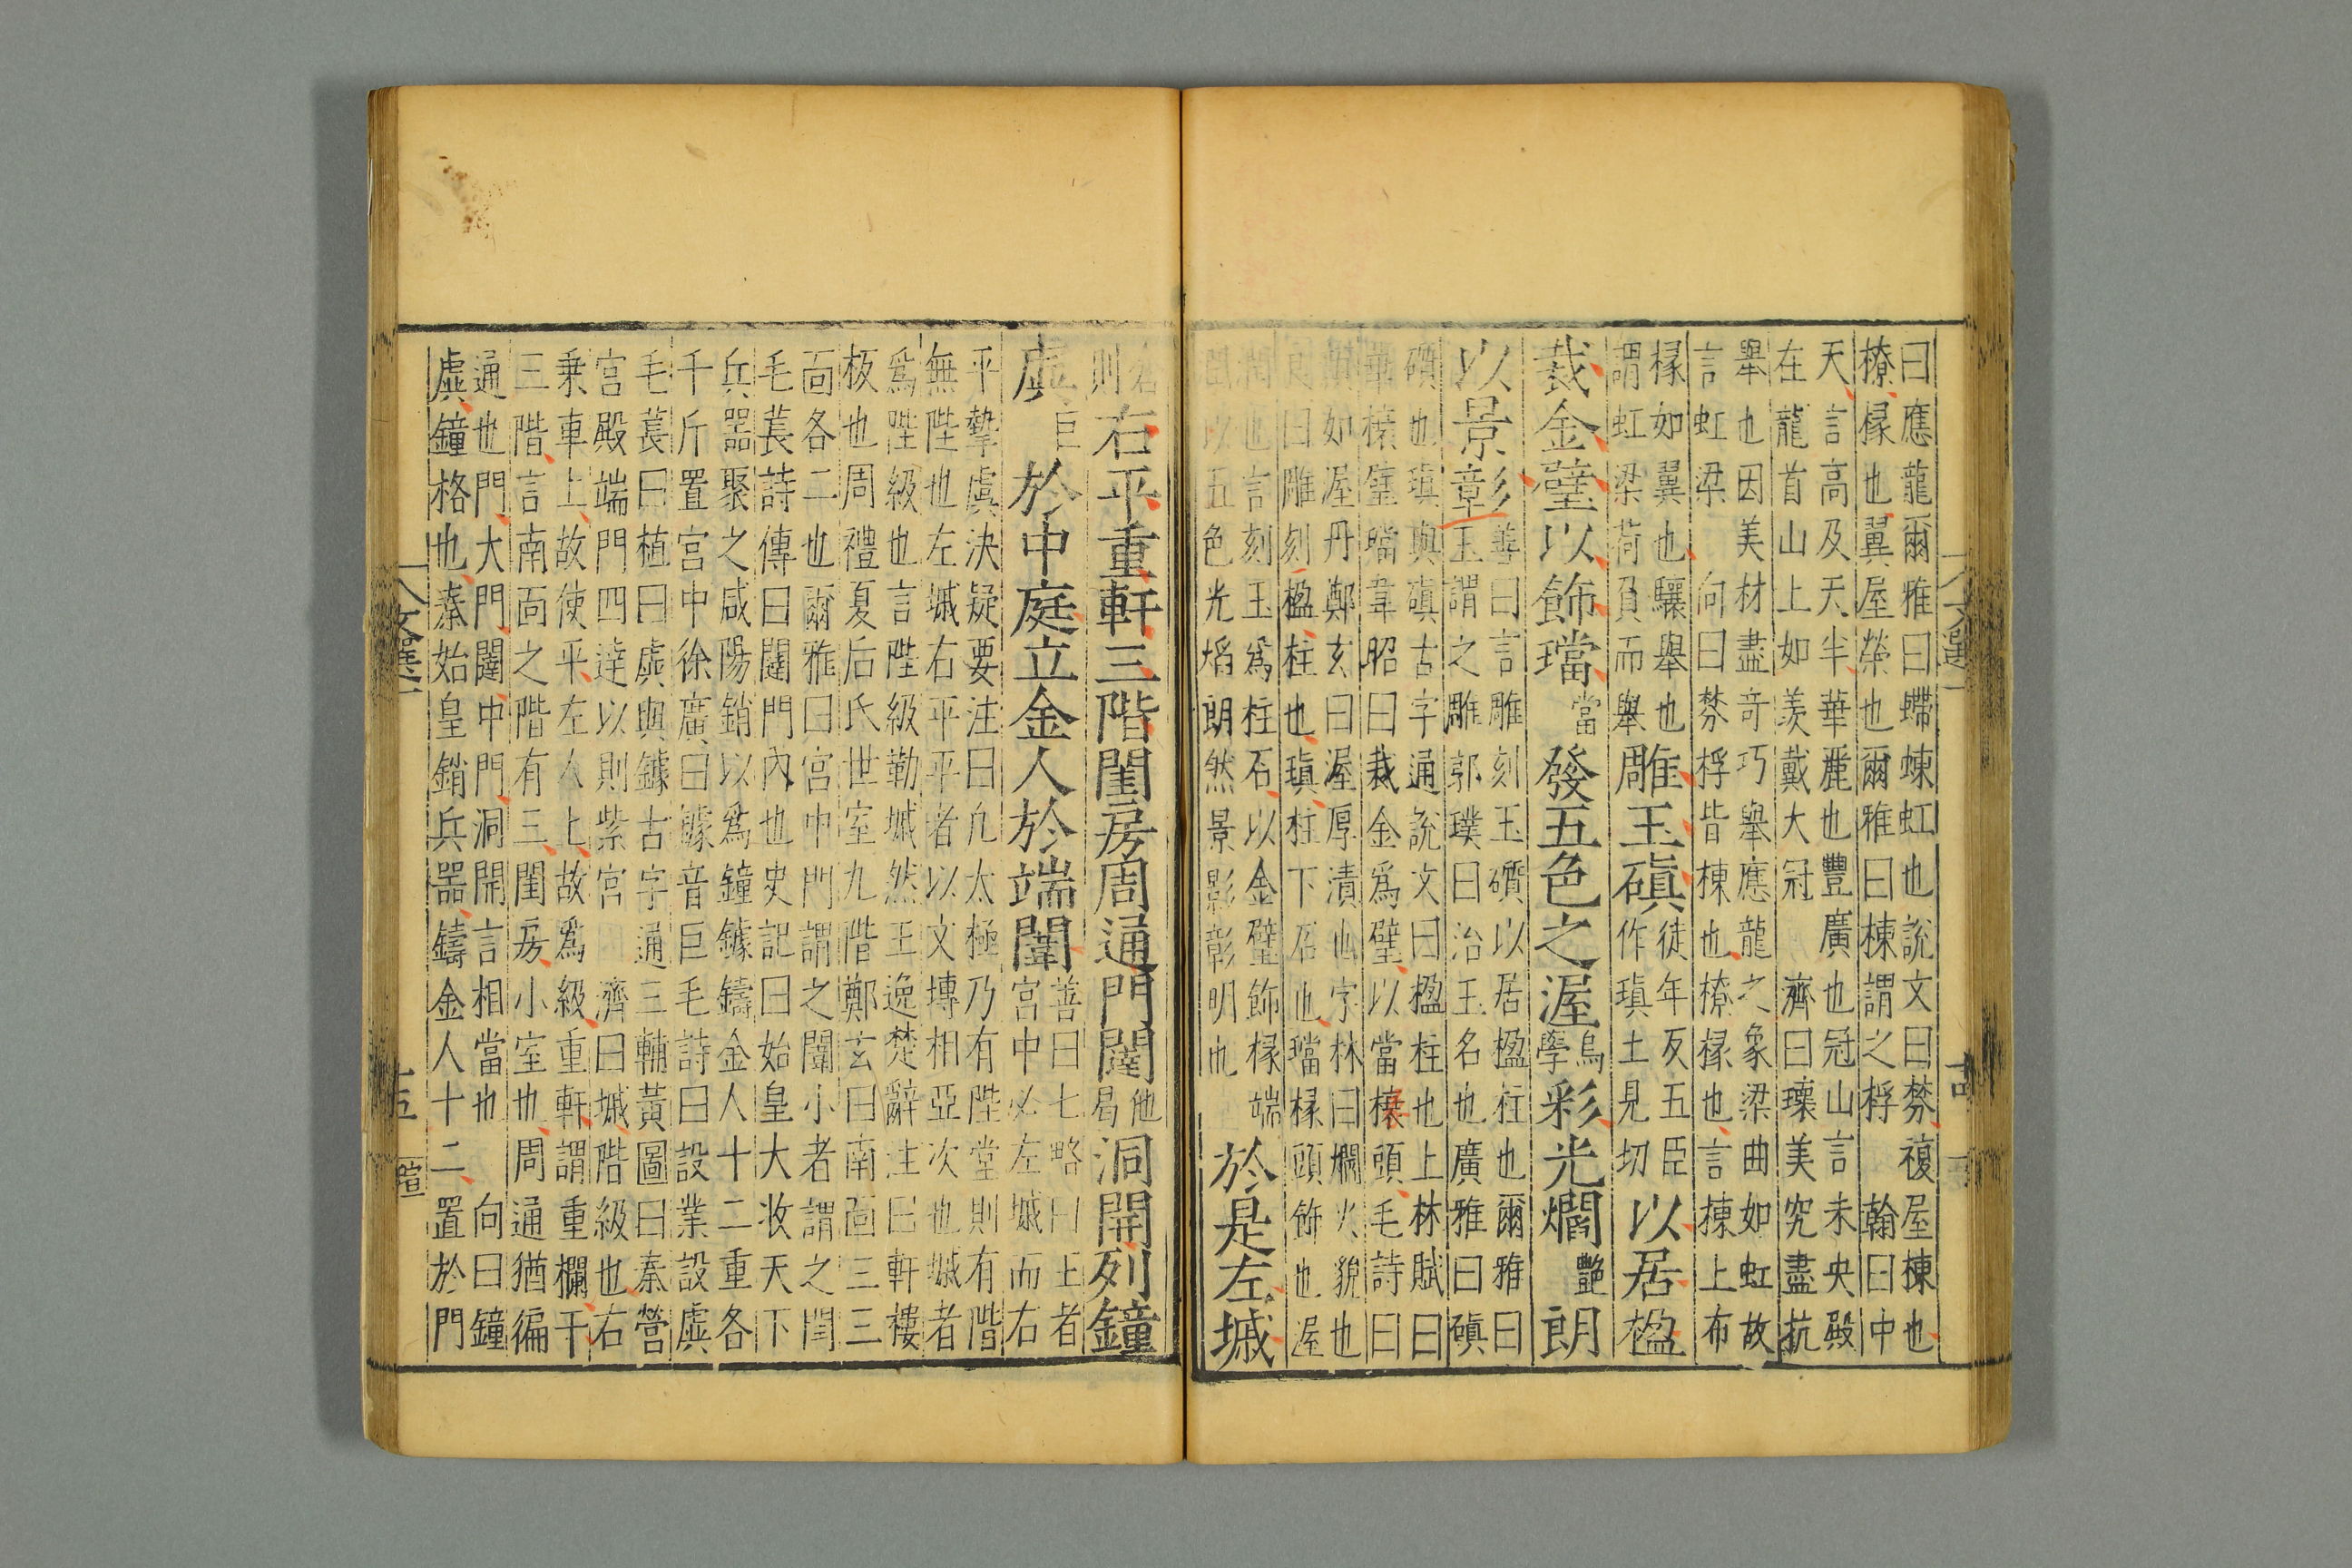 曰應龍爾雅曰螮蝀虹也說文曰棼複屋棟也
橑椽也翼屋榮也爾雅曰棟謂之桴 翰曰中
天言高及天半華麗也豐廣也冠山言未央殿
在龍首山上如羨戴大冠 濟曰瓌美究盡抗
舉也因美材盡奇巧舉應龍之象梁曲如虹故
言虹梁 向曰棼桴皆棟也橑椽也言棟上布
椽如翼也驤舉也
謂虹梁荷負而舉
雕玉磌徒年反五臣
作瑱土見切以居楹
裁金璧以飾璫當發五色之渥鳥
學彩光爓艷朗
以景彰
章善曰言雕刻玉礩以居楹柱也爾雅曰
玉謂之雕郭璞曰治玉名也廣雅曰磌
礩也瑱與磌古字通說文曰楹柱也上林賦曰
華榱璧璫韋昭曰裁金爲璧以當榱頭毛詩曰
顏如渥丹鄭玄曰渥厚漬也字林曰爓火貌也
良曰雕刻楹柱也瑱柱下石也璫椽頭飾也渥
潤也言刻玉爲柱石以金璧飾椽端
間以五色光焰朗然景影彰明也
於是左墄
右平重軒三階閨房周通門闥他
曷洞開列鐘
虡巨於中庭立金人於端闈善曰七略曰王者
宮中必左墄而右
平摯虞決疑要注曰凢太極乃有陛堂則有階
無陛也左墄右平平者以文塼相亞次也墄者
爲陛級也言陛級勒墄然王逸楚辭注曰軒樓
板也周禮夏后氏世室九階鄭玄曰南面三三
面各二也爾雅曰宮中門謂之闈小者謂之閨
毛萇詩傳曰闥門內也史記曰始皇大收天下
兵器聚之咸陽銷以爲鐘鐻鑄金人十二重各
千斤置宮中徐廣曰鐻音巨毛詩曰設業設虡
毛萇曰植曰虡與鐻古字通三輔黃圖曰秦營
宮殿端門四達以則紫宮 濟曰墄階級也右
乗車上故使平左人上故爲級重軒謂重欄干
三階言南面之階有三閨房小室也周通猶徧
通也門大門闥中門洞開言相當也 向曰鐘
虡鐘格也秦始皇銷兵器鑄金人十二置於門
文選一
十五
暄